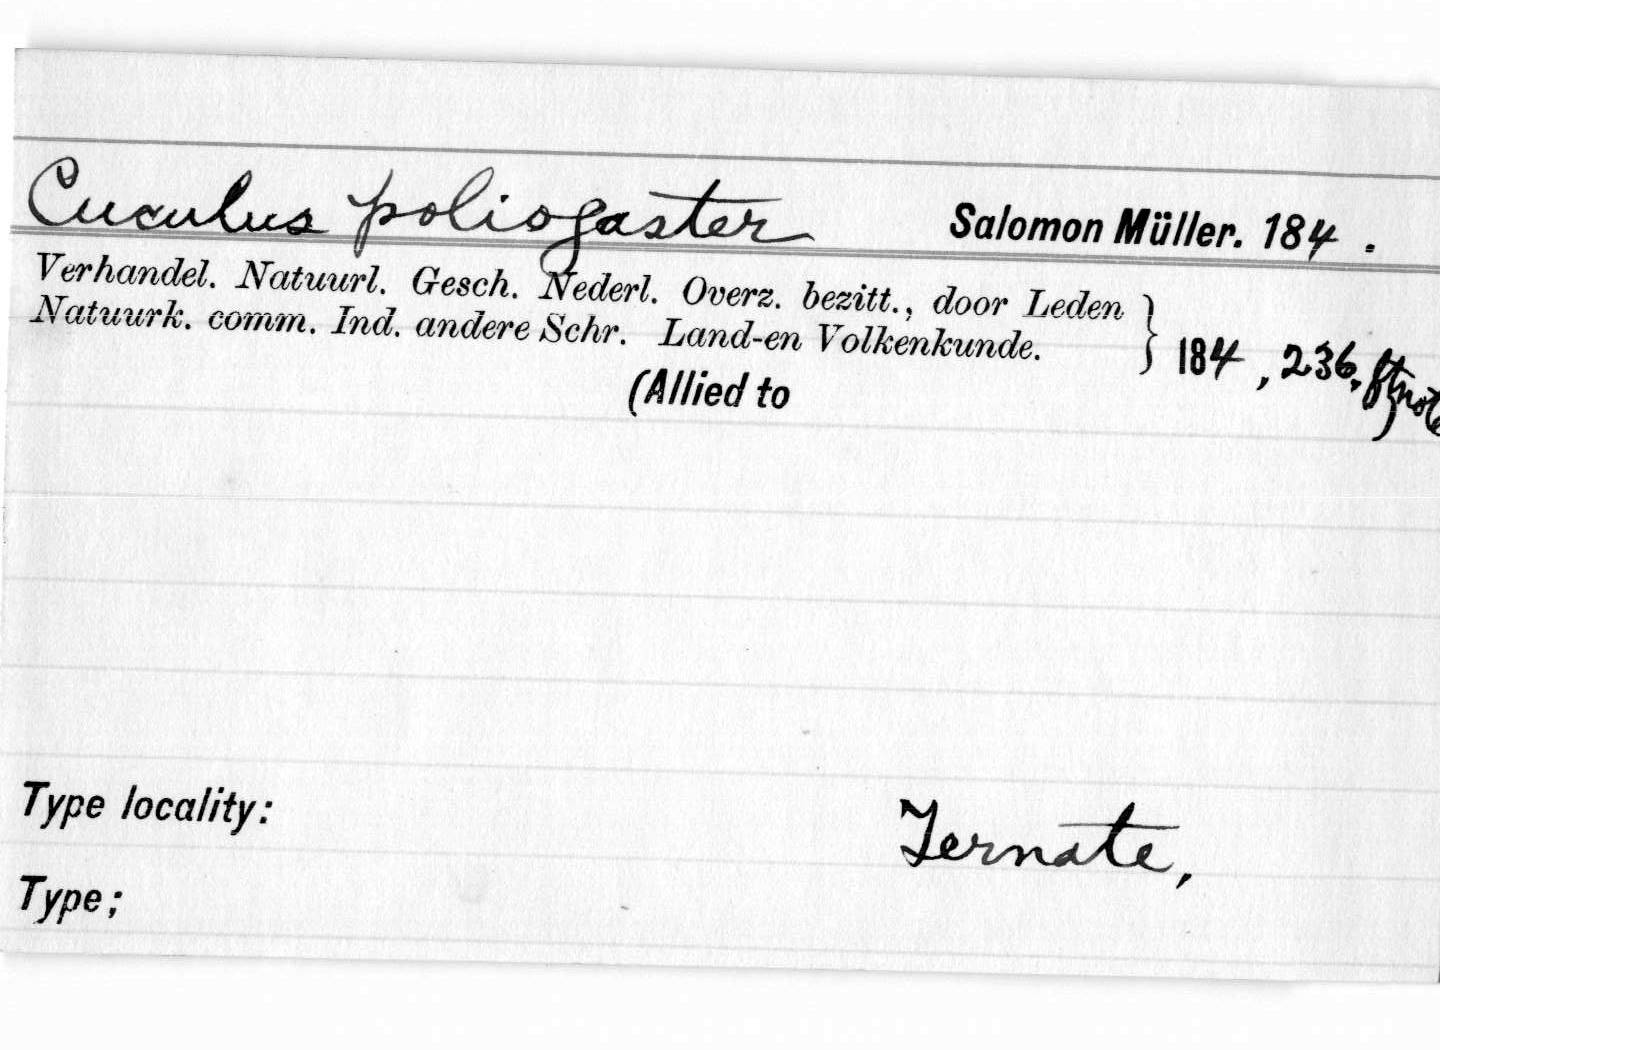 Cuculus poliogaster Salomon Müller. 184 .
Verhandel. Natuurl. Gesch. Nederl. Overz. bezitt., door Leden
Natuurk. comm. Ind. andere Schr. Land-en Volkenkunde. } 184 , 236, ftnote
(Allied to )
Type locality: Ternate,
Type;